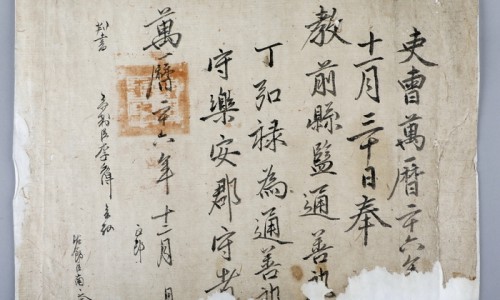 吏曹萬曆二十六年
十一月三十日奉
教前縣監通善郎
丁弘祿為通善郎
守樂安郡守者
萬曆二十六年十二月 日
判書 參判臣李 參議 正郎 佐郎臣南